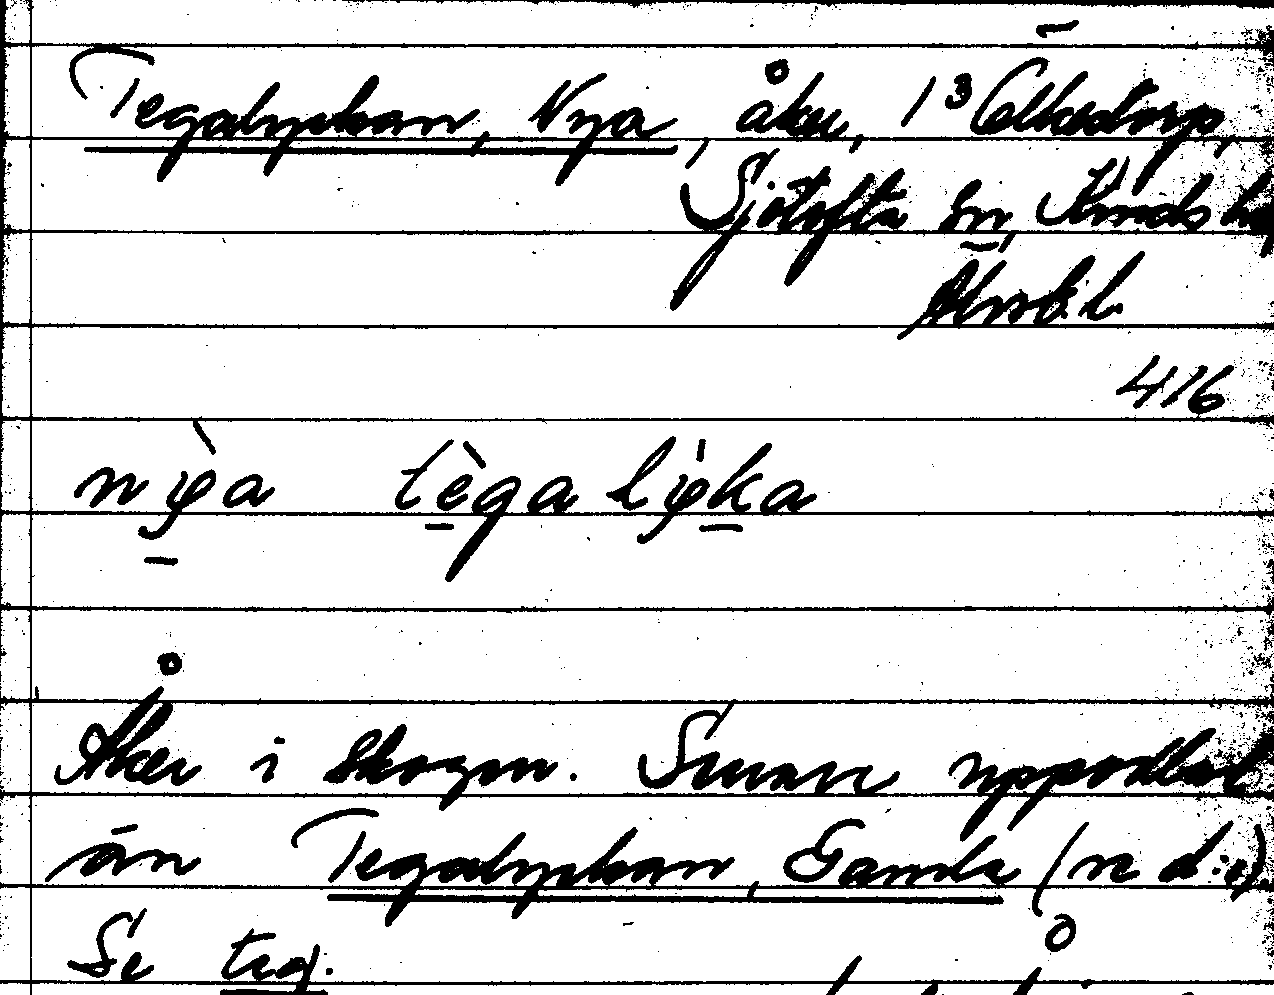 Tegalyckan, Nya, åker, 1³ Ölkestorp,
Sjötofta sn, Kinds hd
Älvsb. l.
416
nỳa tègalýka
Åker i skogen. Senare uppodlad
än Tegalyckan, Gamla (se d:o)
Se teg.